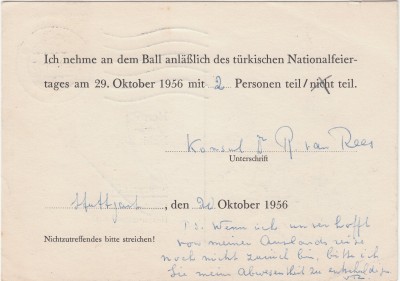 Ich nehme an dem Ball anläßlich des türkischen Nationalfeier-
tages am 29. Oktober 1956 mit 2 Personen teil / nicht teil.
Konsul Dr R. van Rees
Unterschrift
Stuttgart, den 20 Oktober 1956
Nichtzutreffendes bitte streichen!
P.S. Wenn ich unverhofft
von meiner Auslandsreise
noch nicht zurück bin, bitte ich
Sie meine Abwesenheit zu entschuldigen